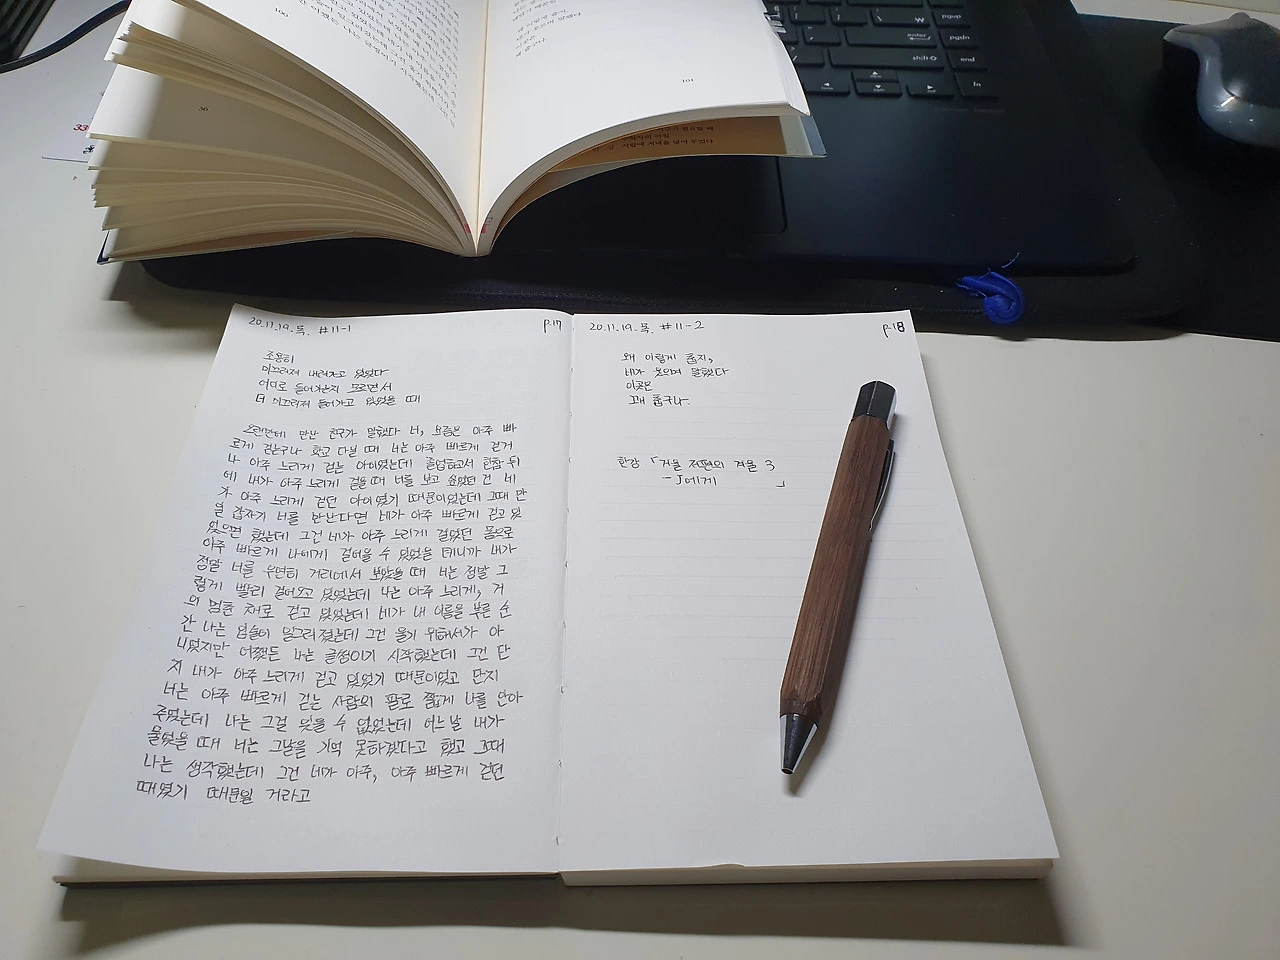 100
101
36
pgup
enter
pgdn
shift
end
fn
20.11.19.목. #11-1
p.17
조용히
미끄러져 내려가고 있었다
어디로 들어가는지 모르면서
더 미끄러져 들어가고 있었을 때
오랜만에 만난 친구가 말했다 너, 요즘은 아주 빠
르게 걷는구나 학교 다닐 때 너는 아주 빠르게 걷거
나 아주 느리게 걷는 아이였는데 졸업하고서 한참 뒤
에 내가 아주 느리게 걸을 때 너를 보고 싶었던 건 네
가 아주 느리게 걷던 아이였기 때문이었는데 그때 만
일 갑자기 너를 만난다면 네가 아주 빠르게 걷고 있
었으면 했는데 그건 네가 아주 느리게 걸었던 몸으로
아주 빠르게 나에게 걸어올 수 있었을 테니까 내가
정말 너를 우연히 거리에서 보았을 때 너는 정말 그
렇게 빨리 걸어오고 있었는데 나는 아주 느리게, 거
의 멈춘 채로 걷고 있었는데 네가 내 이름을 부른 순
간 나는 입술이 일그러졌는데 그건 울기 위해서가 아
니었지만 어쨌든 나는 글썽이기 시작했는데 그건 단
지 내가 아주 느리게 걷고 있었기 때문이었고 단지
너는 아주 빠르게 걷는 사람의 팔로 짧게 나를 안아
주었는데 나는 그걸 잊을 수 없었는데 어느날 내가
물었을 때 너는 그날을 기억 못하겠다고 했고 그때
나는 생각했는데 그건 네가 아주, 아주 빠르게 걷던
때였기 때문일 거라고
20.11.19.목. #11-2
p.18
왜 이렇게 춥지,
네가 웃으며 말했다
이곳은
꽤 춥구나.
한강 「거울 저편의 겨울 3
-J에게 」